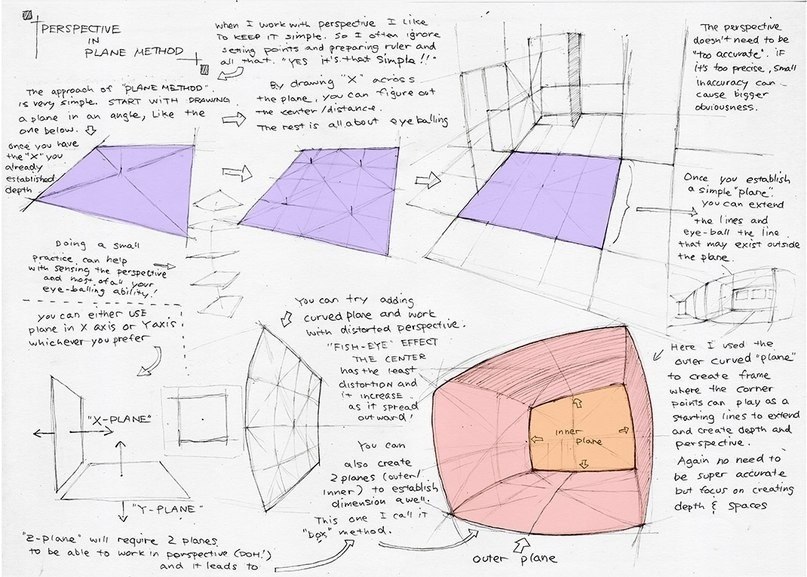 PERSPECTIVE
IN
PLANE METHOD
when I work with perspective I like
TO KEEP IT simple. So I often ignore
seming points and preparing ruler and
all that. "YES it's that Simple!!"
The approach of "PLANE METHOD"
is very simple. START WITH DRAWING
a plane in an angle, like the
one below.
By drawing "X" across
the plane, you can figure out
the center/distance.
The rest is all about eyeballing
The perspective
doesn't need to be
"too accurate". if
it's too precise, small
inaccuracy can
cause bigger
obviousness.
once you have
the "X" you
already
established
depth
Once you establish
a simple "plane".
you can extend
the lines and
eye-ball the line
that may exist outside
the plane.
Doing a small
practice, can help
with sensing the perspective
and most of all your
eye-balling ability!
you can either USE
plane in X axis or Y axis
whichever you prefer
"X-PLANE"
"Y-PLANE"
"Z-plane" will require 2 planes
to be able to work in perspective (DOH!)
and it leads to
You can try adding
curved plane and work
with distorted perspective.
"FISH-EYE" EFFECT
THE CENTER
has the least
distortion and
it increase
as it spread
outward!
You can
also create
2 planes (outer/
inner) to establish
dimension as well.
This one I call it
"box" method.
inner
plane
outer plane
Here I used the
outer curved "plane"
to create frame
where the corner
points can play as a
starting lines to extend
and create depth and
perspective.
Again no need to
be super accurate
but focus on creating
depth & spaces